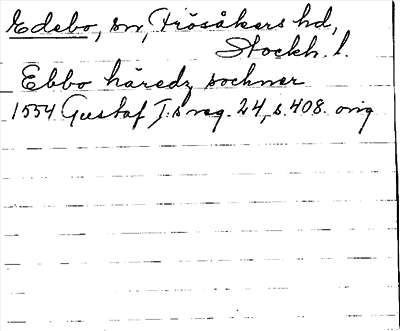 Edebo, sn, Frösåkers hd,
Stockh. l.
Ebbo häredz sochner
1554 Gustaf I:s reg. 24, s. 408. orig